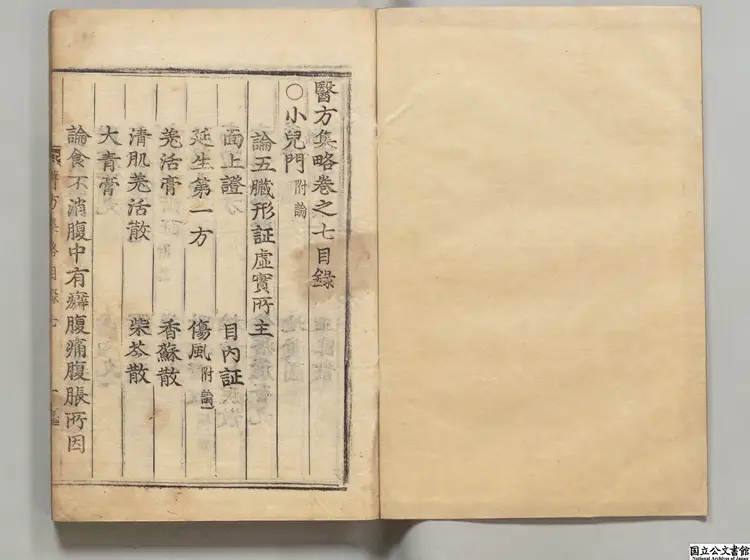 醫方集略卷之七目錄
○小兒門 附論
論五臟形証虛實所主
面上證 目內証
延生第一方 傷風 附論
羗活膏 香蘇散
清肌羗活散 柴苓散
大青膏
論食不消腹中有癖腹痛腹脹所因
醫方集略目錄七 一
国立公文書館
National Archives of Japan